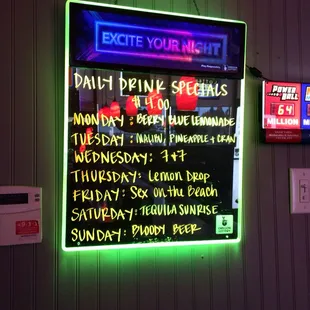 EXCITE YOUR NIGHT
DAILY DRINK SPECIALS
$4.00
MONDAY: BERRY BLUE LEMONADE
TUESDAY: MALIBU, PINEAPPLE + CRAN
WEDNESDAY: 7+7
THURSDAY: LEMON DROP
FRIDAY: SEX ON THE BEACH
SATURDAY: TEQUILA SUNRISE
SUNDAY: BLOODY BEER
POWER
BALL
64
MILLION